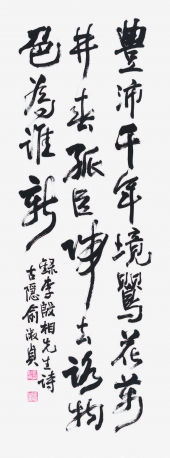 豐沛千年境鶯花萬
井春孤臣啼去路物
色為誰新
錄李殷相先生詩
古隱俞淑貞